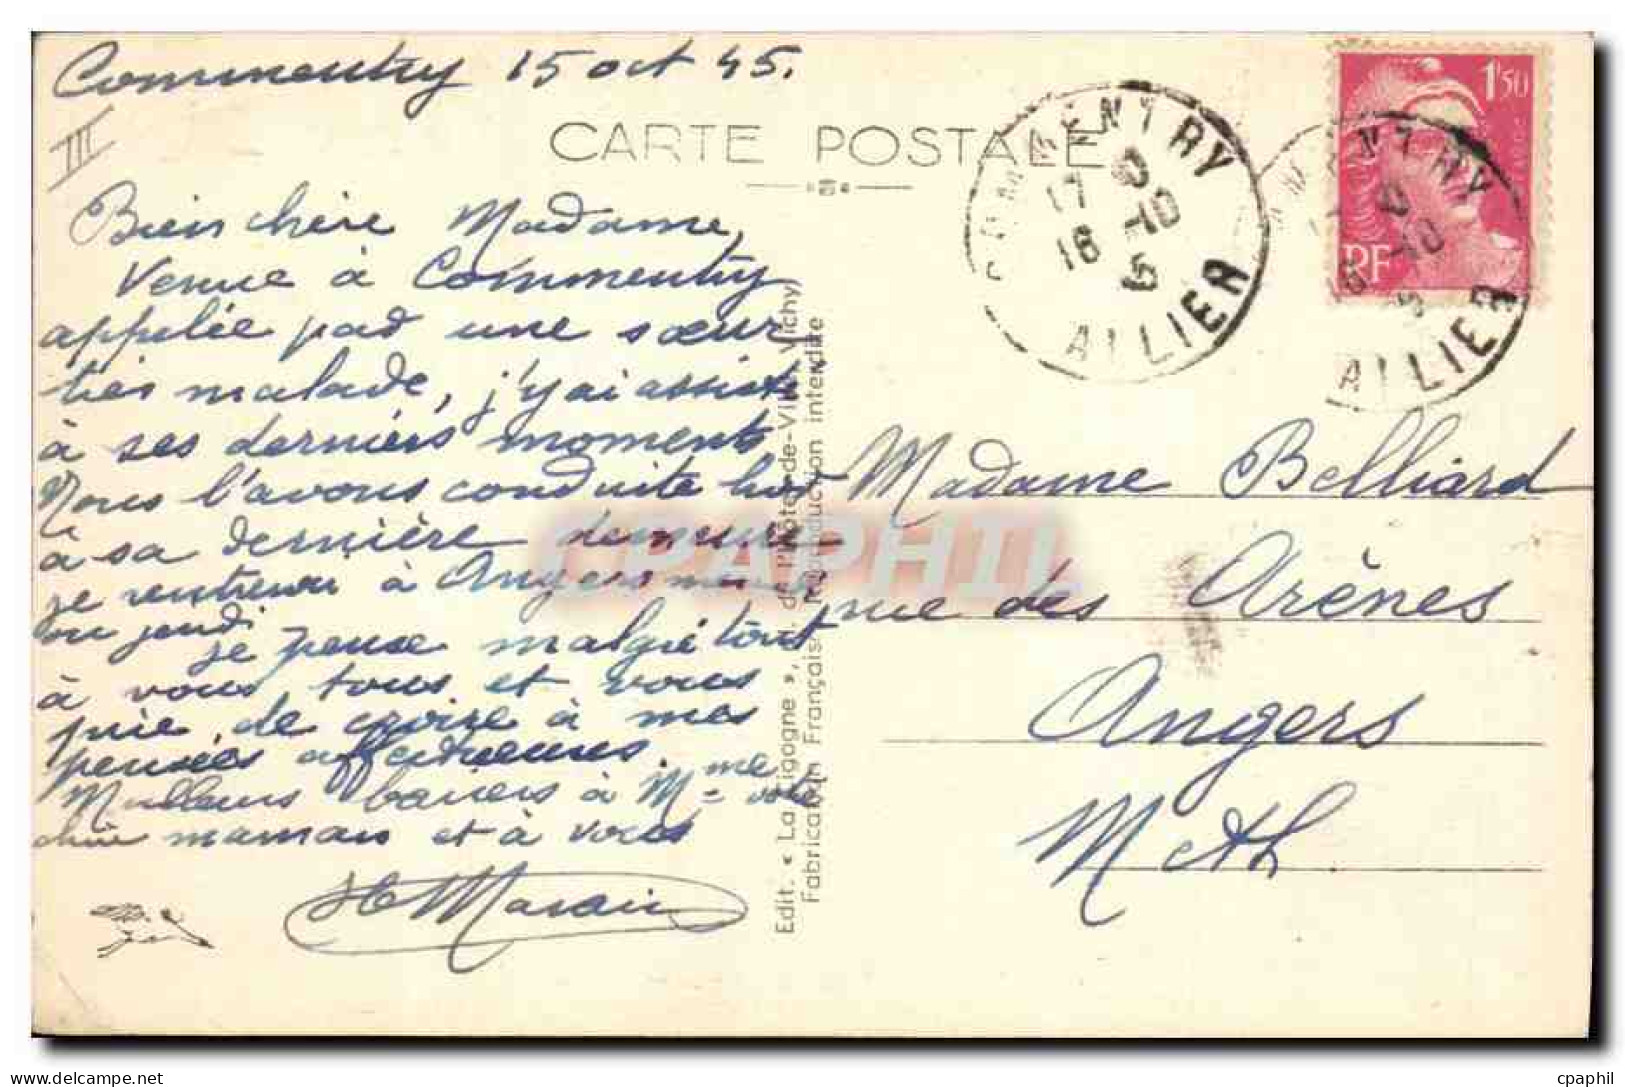 Commentry 15 oct 45.
III
CARTE POSTALE
Bien chère Madame,
Venue à Commentry
appelée par une sœur
très malade, j'y ai assisté
à ses derniers moments
Nous l'avons conduite hier
à sa dernière demeure
je rentrerai à Angers
ou jeudi
je pense malgré tout
à vous tous et vous
prie de croire à mes
pensées affectueuses.
Meilleurs baisers à Mme votre
chère maman et à vous
Madame Belliard
rue des Arènes
Angers
M et L
1,50
RF
COMMENTRY
17 0
16 -10
5
ALLIER
ALLIER
Edit. « La Cigogne », de l'Hôtel-de-Ville, Vichy
Fabrication Française. Reproduction interdite
CPAPHIL
delcampe.net
cpaphil